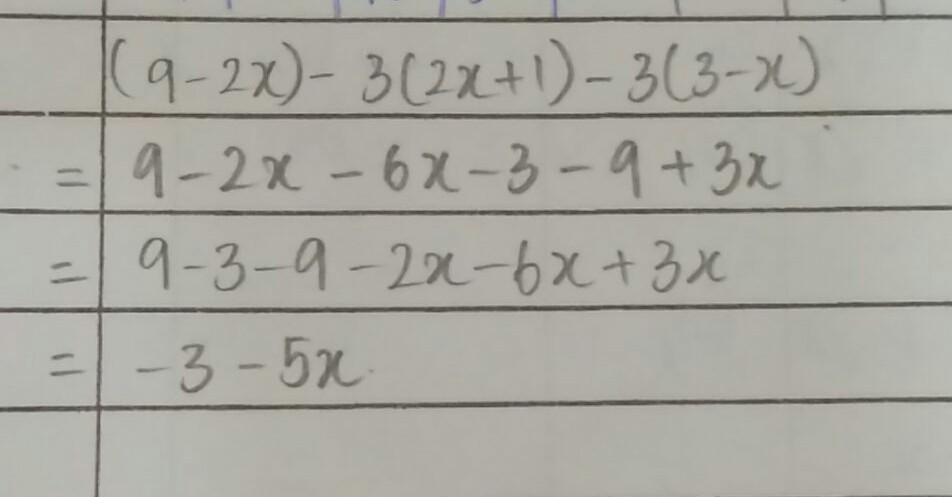 (9-2x)-3(2x+1)-3(3-x)
= 9-2x-6x-3-9+3x
= 9-3-9-2x-6x+3x
= -3-5x